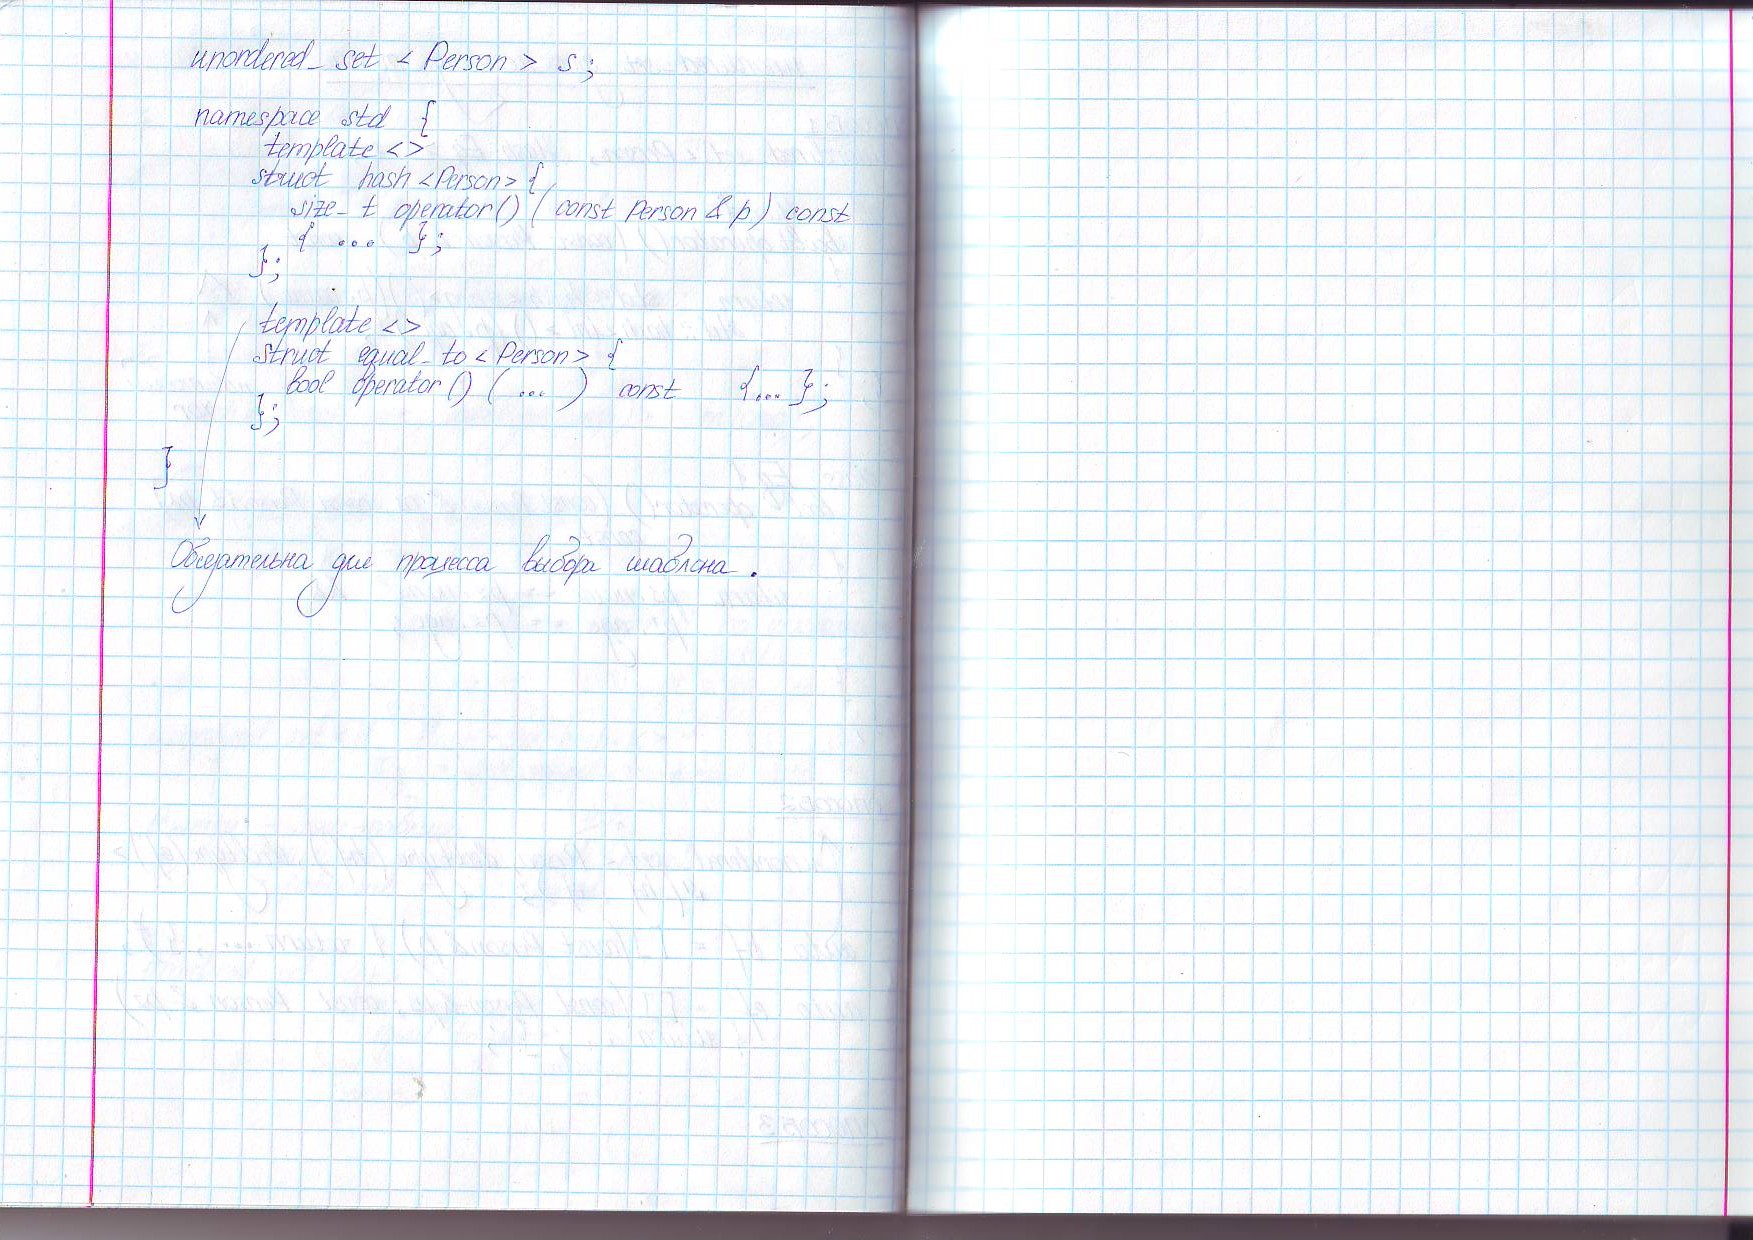 unordered_set <Person> s;
namespace std {
template <>
struct hash <Person> {
size_t operator() (const Person & p) const
{ ... };
};
template <>
struct equal_to <Person> {
bool operator() ( ... ) const {...};
};
}
Обязательна для процесса выбора шаблона.